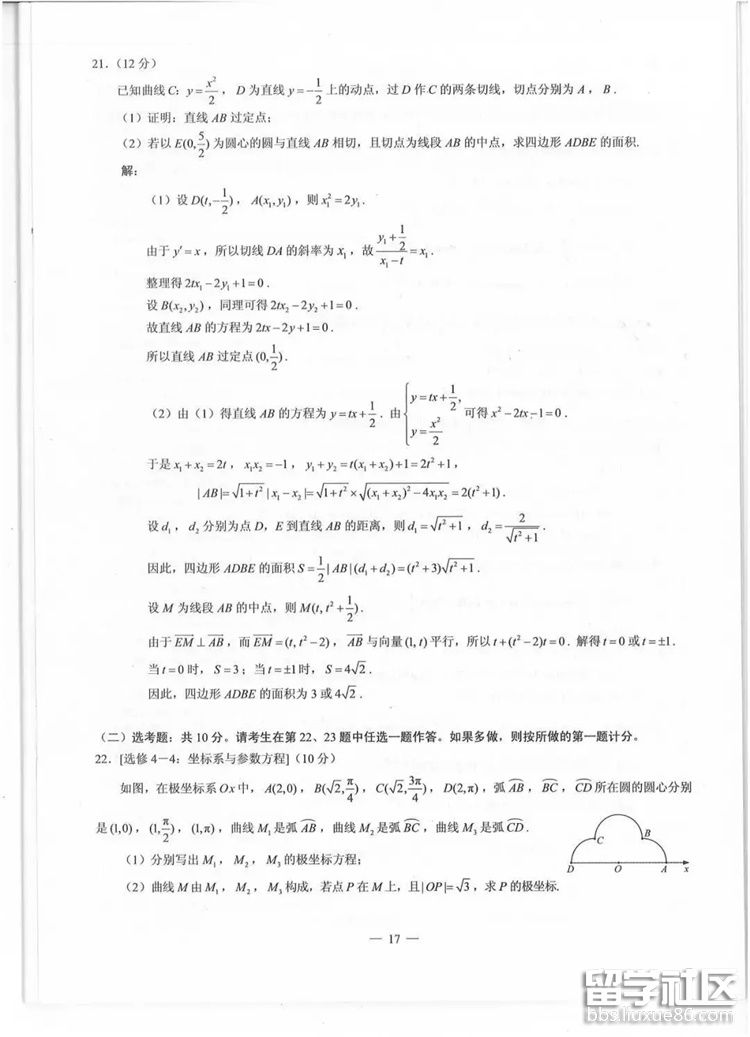 21.（12 分）
已知曲线 C: y=x²/2，D 为直线 y=-1/2 上的动点，过 D 作 C 的两条切线，切点分别为 A，B.
（1）证明：直线 AB 过定点；
（2）若以 E(0,5/2) 为圆心的圆与直线 AB 相切，且切点为线段 AB 的中点，求四边形 ADBE 的面积.
解：
（1）设 D(t,-1/2)，A(x₁,y₁)，则 x₁²=2y₁.
由于 y′=x，所以切线 DA 的斜率为 x₁，故 (y₁+1/2)/(x₁-t)=x₁.
整理得 2tx₁-2y₁+1=0.
设 B(x₂,y₂)，同理可得 2tx₂-2y₂+1=0.
故直线 AB 的方程为 2tx-2y+1=0.
所以直线 AB 过定点 (0,1/2).
（2）由（1）得直线 AB 的方程为 y=tx+1/2. 由 { y=tx+1/2, y=x²/2 可得 x²-2tx-1=0.
于是 x₁+x₂=2t，x₁x₂=-1，y₁+y₂=t(x₁+x₂)+1=2t²+1，
|AB|=√(1+t²)|x₁-x₂|=√(1+t²)×√((x₁+x₂)²-4x₁x₂)=2(t²+1).
设 d₁，d₂ 分别为点 D，E 到直线 AB 的距离，则 d₁=√(t²+1)，d₂=2/√(t²+1).
因此，四边形 ADBE 的面积 S=1/2|AB|(d₁+d₂)=(t²+3)√(t²+1).
设 M 为线段 AB 的中点，则 M(t, t²+1/2).
由于 EM⊥AB，而 EM=(t, t²-2)，AB 与向量 (1, t) 平行，所以 t+(t²-2)t=0. 解得 t=0 或 t=±1.
当 t=0 时，S=3；当 t=±1 时，S=4√2.
因此，四边形 ADBE 的面积为 3 或 4√2.
（二）选考题：共 10 分。请考生在第 22、23 题中任选一题作答。如果多做，则按所做的第一题计分。
22．[选修 4－4：坐标系与参数方程]（10 分）
如图，在极坐标系 Ox 中，A(2,0)，B(√2,π/4)，C(√2,3π/4)，D(2,π)，弧 AB，BC，CD 所在圆的圆心分别
是 (1,0)，(1,π/2)，(1,π)，曲线 M₁ 是弧 AB，曲线 M₂ 是弧 BC，曲线 M₃ 是弧 CD.
（1）分别写出 M₁，M₂，M₃ 的极坐标方程；
（2）曲线 M 由 M₁，M₂，M₃ 构成，若点 P 在 M 上，且 |OP|=√3，求 P 的极坐标.
C B
D O A x
— 17 —
留学社区
bbs.liuxue86.com